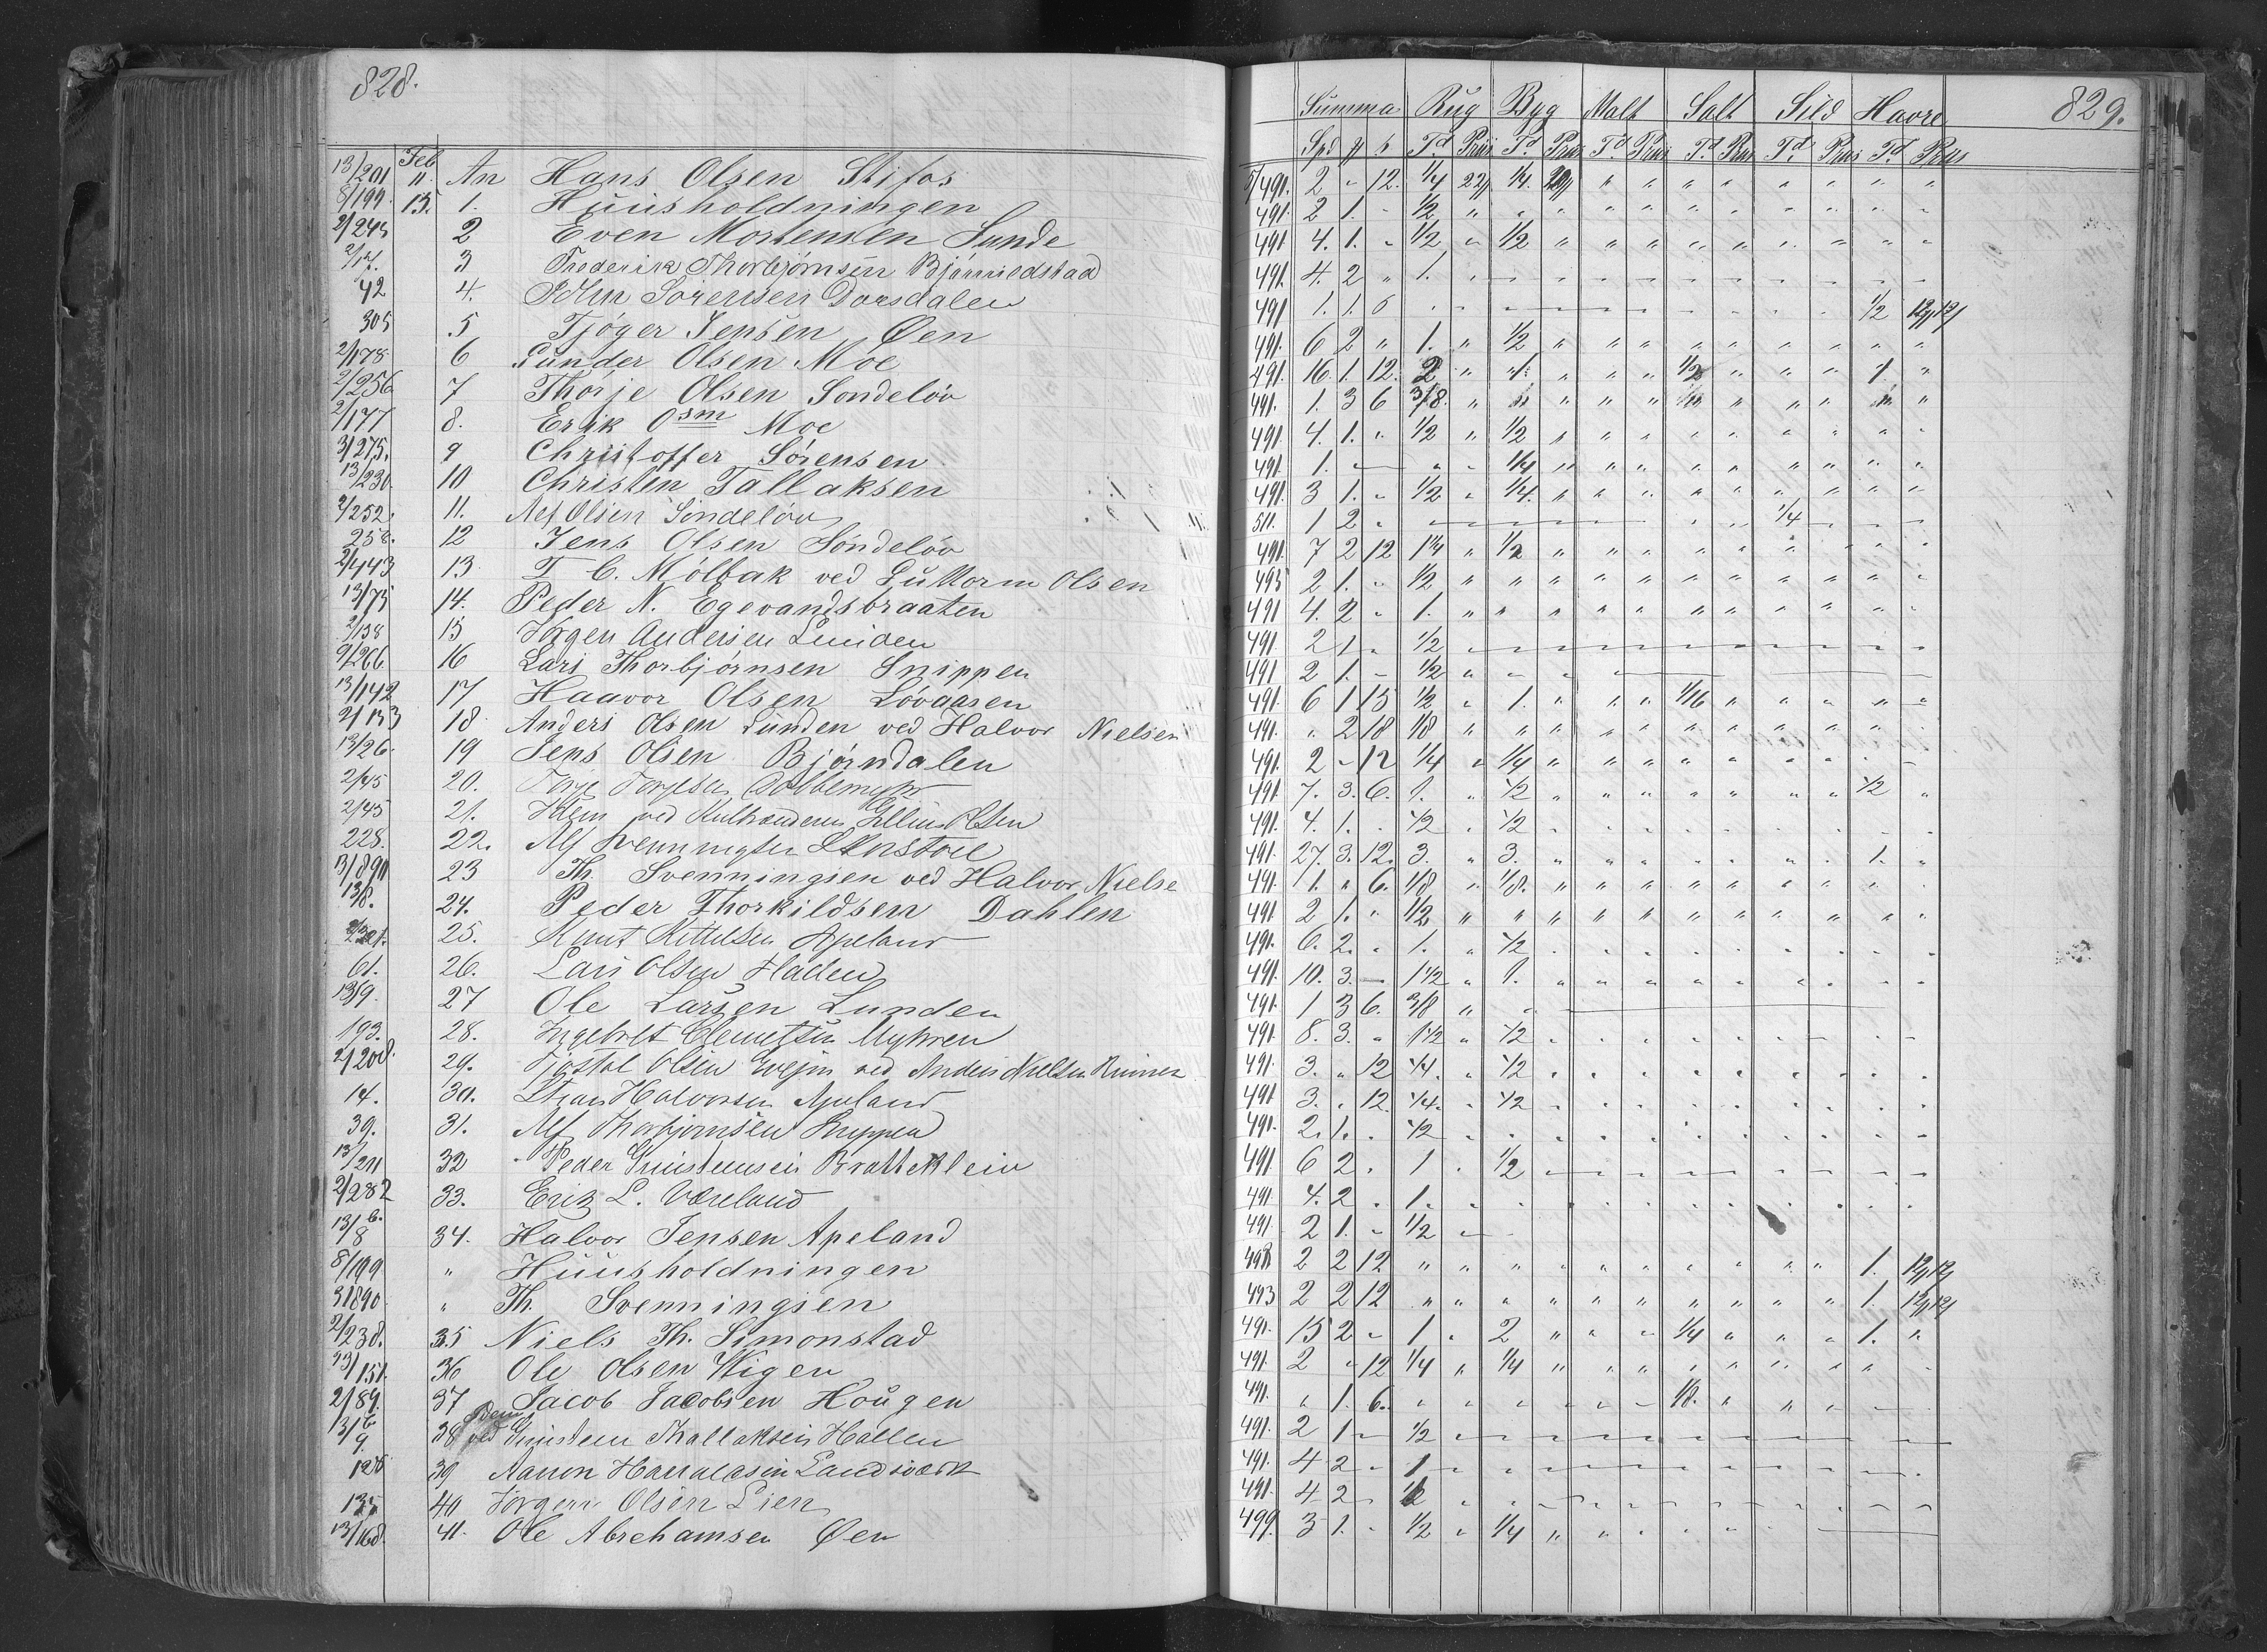 828.
13/201 Feb 11. An Hans Olsen Stifos
8/199 13. 1. Huusholdningen
2/245 2 Even Mortensen Sunde
2/17. 3 Frederik Thorbjørnsen
42 4. Sørensen Dorsdalen
305 5 Tjøger Jensen Øen
2/178 6 Gunder Olsen Moe
2/256 7 Thorje Olsen Sondeløv
2/177 8. Erik Osm Moe
3/275. 9 Christoffer Sørensen
13/230 10 Christen Tallaksen
2/252. 11. Alf Olsen Sondeløv
258. 12 Jens Olsen Søndeløv
2/443 13 T. C. Mølbak ved Guttorm Olsen
13/75 14. Peder N. Egevandsbraaten
2/138 15 Jørgen Andersen
2/266 16 Lars Thorbjørnsen Snippen
13/142 17 Haavor Olsen Løvaasen
2/133 18. Anders Olsen Lunden ved Halvor Nielsen
13/26. 19 Jens Olsen Bjørndalen
2/45 20. Torje Torjesen
2/45 21. ved Olsen
228. 22. Alf Svenningsen
13/890 23 Th. Svenningsen ved Halvor Nielse
13/8. 24. Peder Thorkildsen Dahlen
25. Knut Kittelsen Apeland
61. 26. Lars Olsen Haden
13/9. 27 Ole Larsen Lunden
193. 28. Ingebret Clemetsen Myhren
2/208. 29. Tjøstol Olsen ved Anders Nielsen
14. 30. Halvorsen Apeland
39. 31. Alf Thorbjørnsen Snippen
13/211 32 Peder Gunstensen Bratteklein
2/282 33. Erik L. Væreland
13/8 b. 34. Halvor Jensen Apeland
8/199 " Huusholdningen
3/890 " Th. Svenningsen
2/238. 35 Niels Th. Simonstad
13/151. 36 Ole Olsen Vigen
2/89. 37 Jacob Jacobsen Hougen
13/9. 38 ved Gunsten Thallaksen Hallen
128 39 Aanon Landsværk
135 40 Jørgen Olsen Lien
13/168. 41. Ole Abrehamsen Øen
829.
Summa Rug Byg Malt Salt Sild Havre
Spd Td Priis Td Priis Td Priis Td Priis Td Priis Td Priis
5/491. 2 " 12. 1/4 22 1/4. 20 " " " " " " " "
491. 2 1. " 1/2 " " " " " " " " " " "
491 4. 1. " 1/2 " 1/2 " " " " " " " " "
491. 4. 2 " 1. " " " " " " " " " " "
491 1. 1. 6 " " " " " " " " " " 1/2 12
491. 6 2 " 1. " 1/2 " " " " " " " " "
491. 16. 1. 12. 2 " 4. " " " 1/2 " " " 1. "
491. 1. 3 6 3/8. " " " " " " " " " " "
491. 4. 1. " 1/2 " 1/2 " " " " " " " " "
491. 1. " " " " 1/4 " " " " " " " " "
491. 3 1. " 1/2 " 1/4. " " " " " " " " "
511. 1 2 " " " " " " " " " 1/4 " " "
491. 7 2 12 1 1/4 " 1/2 " " " " " " " " "
493 2 1. " 1/2 " " " " " " " " " " "
491 4. 2 " 1. " " " " " " " " " " "
491. 2 1 " 1/2 " " " " " " " " " " "
491 2 1. " 1/2 " " " " " " " " " " "
491. 6 1 15 1/2 " 1. " " " 1/16 " " " " "
491. " 2 18 1/8 " " " " " " " " " " "
491. 2 " 12 1/4 " 1/4 " " " " " " " " "
491. 7. 3. 6. 1. " 1/2 " " " " " " " 1/2 "
491. 4. 1. " 1/2 " 1/2 " " " " " " " " "
491. 27. 3. 12. 3. " 3. " " " " " " " 1. "
491. 1. " 6. 1/8 " 1/8. " " " " " " " " "
491. 2 1. " 1/2 " " " " " " " " " " "
491. 6. 2. " 1. " 1/2 " " " " " " " " "
491. 10. 3. " 1 1/2 " 1. " " " " " " " " "
491. 1 3 6. 3/8 " "
491. 8. 3. " 1 1/2 " 1/2 " " " " " " " " "
491. 3. " 12 1/4. " 1/2 " " " " " " " " "
491 3. " 12. 1/4. " 1/2 " " " " " " " " "
491. 2. 1. " 1/2 " " " " " " " " " " "
491. 6 2 " 1 " 1/2 " " " " " " " " "
491. 4. 2 " 1. " " " " " " " " " " "
491. 2 1. " 1/2 "
2 2 12 " " " " " " " " " " 1. 12
493 2 2 12 " " " " " " " " " " 1. 12
491. 15 2 " 1 " 2 " " " 1/4 " " " 1. "
491. 2 " 12 1/4 " 1/4 " " " " " " " " "
491. " 1. 6. " " " " " " 1/8. " " " " "
491. 2 1 " 1/2 " " " " " " " " " " "
491. 4 2 " 1 " " " " " " " " " " "
491. 4 2 " " " " " " " " " " " "
499. 3 1. " 1/2 " 1/4 " " " " "